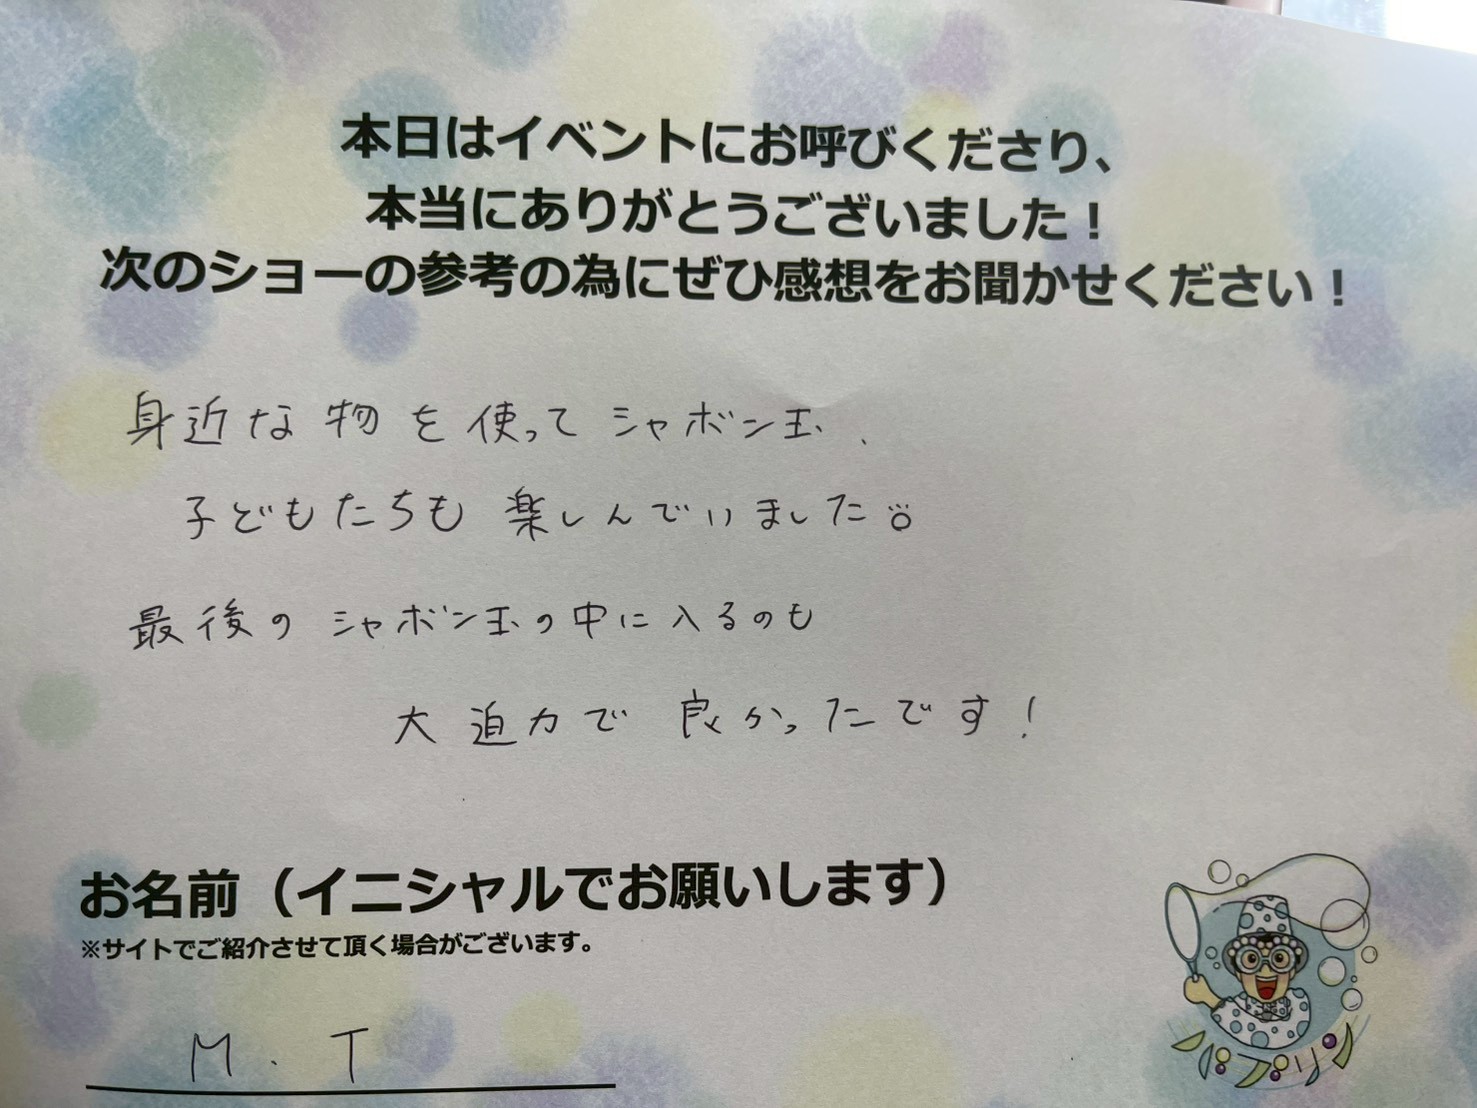 本日はイベントにお呼びくださり、
本当にありがとうございました！
次のショーの参考の為にぜひ感想をお聞かせください！
身近な物を使ってシャボン玉、
子どもたちも楽しんでいました。
最後のシャボン玉の中に入るのも
大迫力で良かったです！
お名前（イニシャルでお願いします）
※サイトでご紹介させて頂く場合がございます。
M.T
パプリン